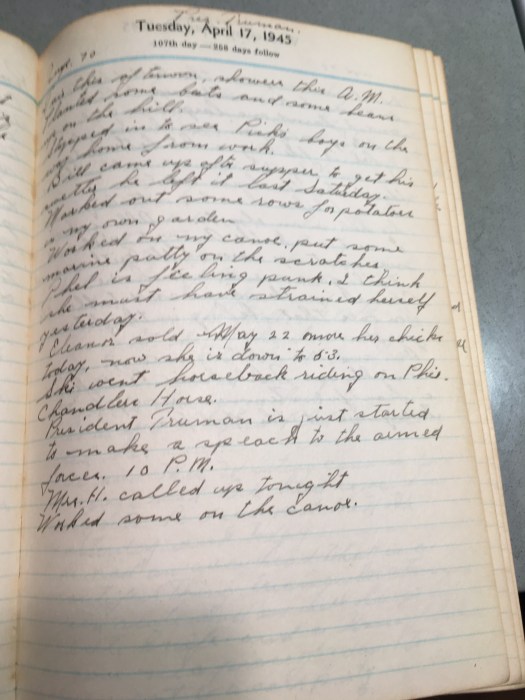 Pres. Truman.
Tuesday, April 17, 1945
107th day — 258 days follow
70
this afternoon, showers this A.M.
Planted some oats and some beans
on the hill.
Stopped in to see boys on the
home from work.
Bill came up after supper to get his
he left it last Saturday.
Marked out some rows for potatoes
in my own garden
Worked on my canoe, put some
marine putty on the scratches
is feeling punk, I think
she must have strained herself
yesterday.
Eleanor sold 22 more her chicks
today, now she is down to 53.
She went horseback riding on
Chandlers Horse.
President Truman is just started
to make a speach to the armed
forces. 10 P.M.
Mrs. H. called up tonight
Worked some on the canoe.